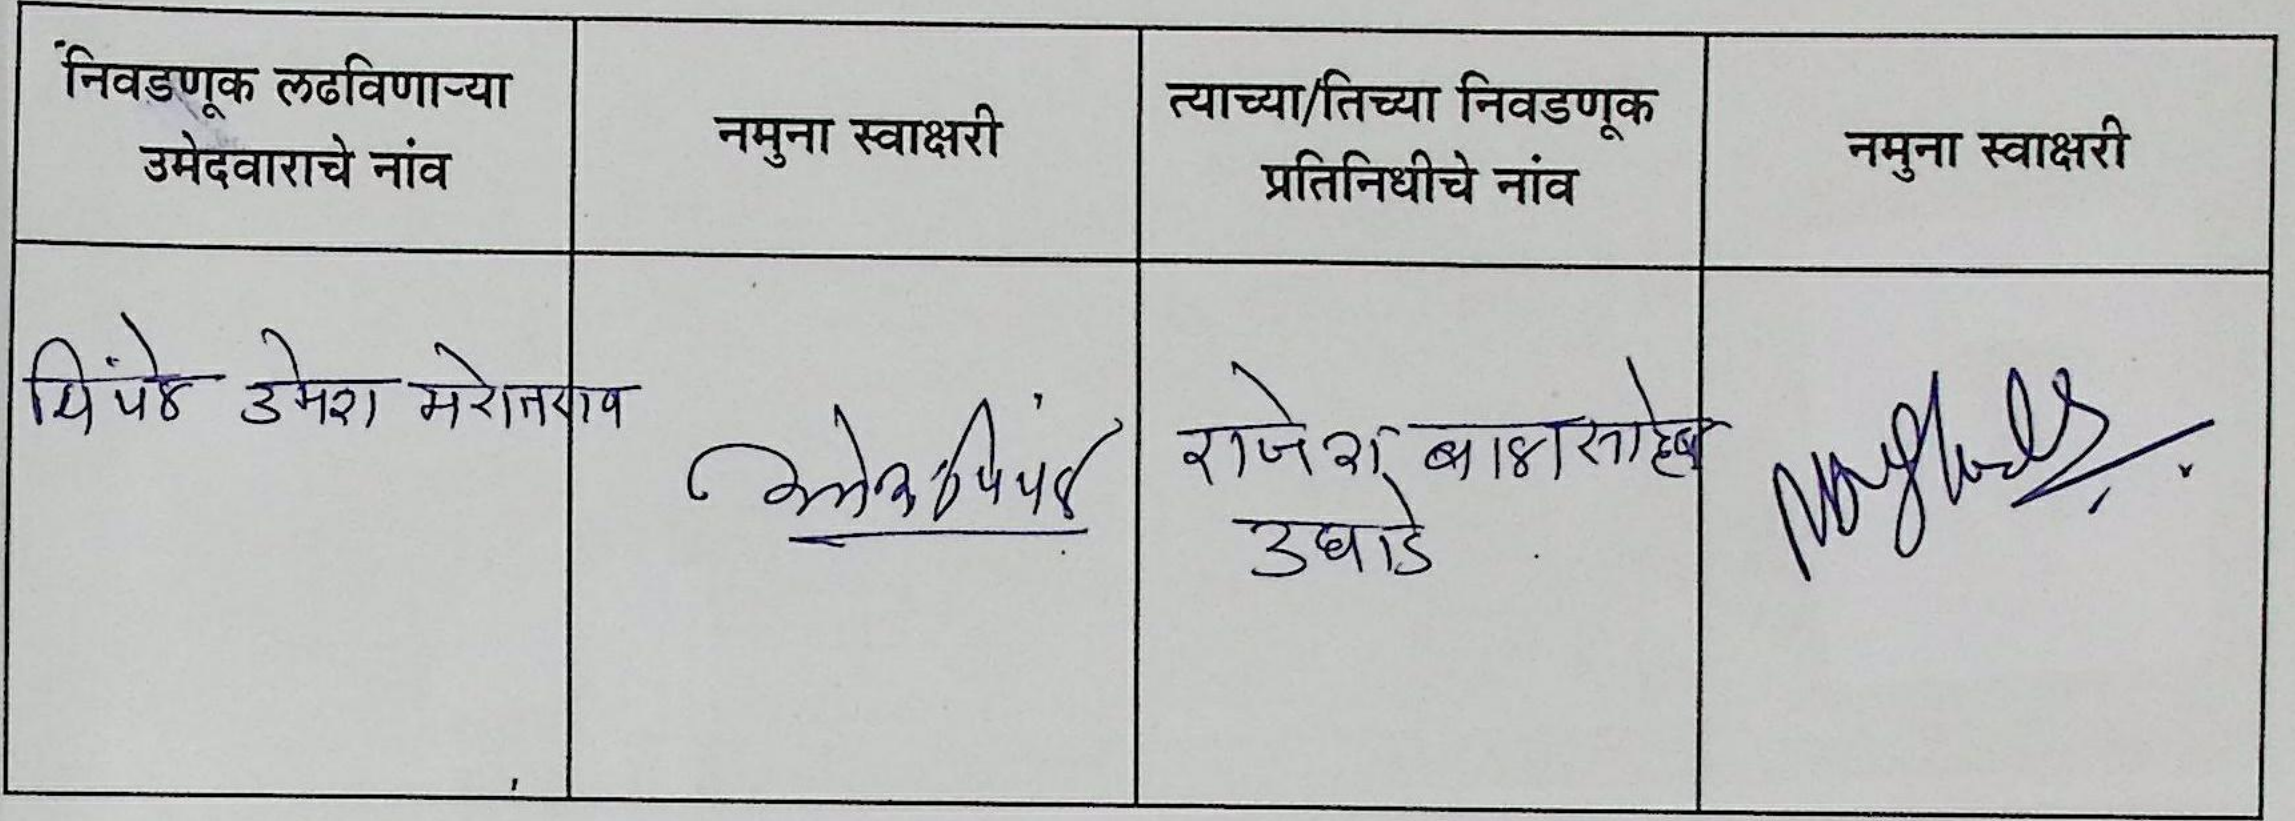 निवडणूक लढविणाऱ्या
उमेदवाराचे नांव
नमुना स्वाक्षरी
त्याच्या/तिच्या निवडणूक
प्रतिनिधीचे नांव
नमुना स्वाक्षरी
पिंपळे उमेश
राजेश बाळासाहेब
उघाडे